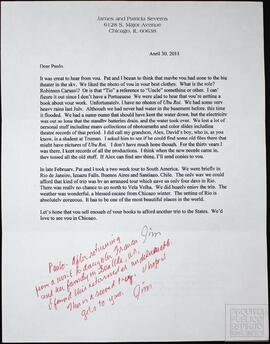 James and Patricia Severns
6128 S. Major Avenue
Chicago, IL 60638
April 30, 2011
Dear Paulo.
It was great to hear from you. Pat and I began to think that maybe you had gone to the big
theater in the sky. We liked the photo of you in your best clothes. What is the role?
Robinson Carusoi? Or is that "Tio" a reference to "Uncle" something or other. I can
figure it out since I don't have a Portuguese. We were glad to hear that you're setting a
book about your work. Unfortunately, I have no photos of Ubu Roi. We had some very
heavy rains last July. Although we had never had water in the basement before, this time
it flooded. We had a sump pump that should have kept the water down, but the electricity
was out so long that the standby batteries died, and the water took over. We lost a lot of
personal stuff including many collections of photographs and color slides including
theatre records of that period. I did call my grandson, Alex, David's boy, who is, as you
know, is a student at Truman. I asked him to see if he could find some old files there that
might have pictures of Ubu Roi. I don't have much hope though. For the thirty years I
was there, I kept records of all the productions. I think when the new people came in,
they tossed all the old stuff. If Alex can find any thing, I'll send copies to you.
In late February, Pat and I took a two week tour to South America. We were briefly in
Rio de Janeiro, Iguazu Falls, Buenos Aires and Santiago, Chile. The only way we could
afford that kind of trip was by an arranged tour which gave us only four days in Rio.
There was really no chance to go north to Vela Velha. We did hugely enjoy the trip. The
weather was wonderful, a blessed escape from Chicago winter. The setting of Rio is
absolutely gorgeous. It has to be one of the most beautiful places in the world.
Let's hope that you sell enough of your books to afford another trip to the States. We'd
love to see you in Chicago.
Jim
Paulo - After returning
from a visit to daughter
and her family in Seattle,
I found this returned as undeliverable
There's a second try. I hope it
gets to you. Jim